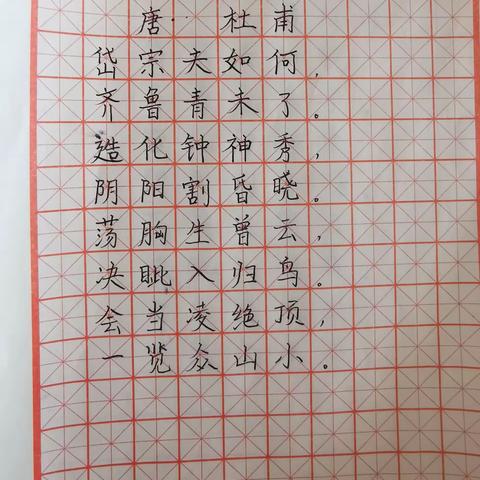 唐·杜甫
岱宗夫如何,
齐鲁青未了。
造化钟神秀,
阴阳割昏晓。
荡胸生曾云,
决眦入归鸟。
会当凌绝顶,
一览众山小。